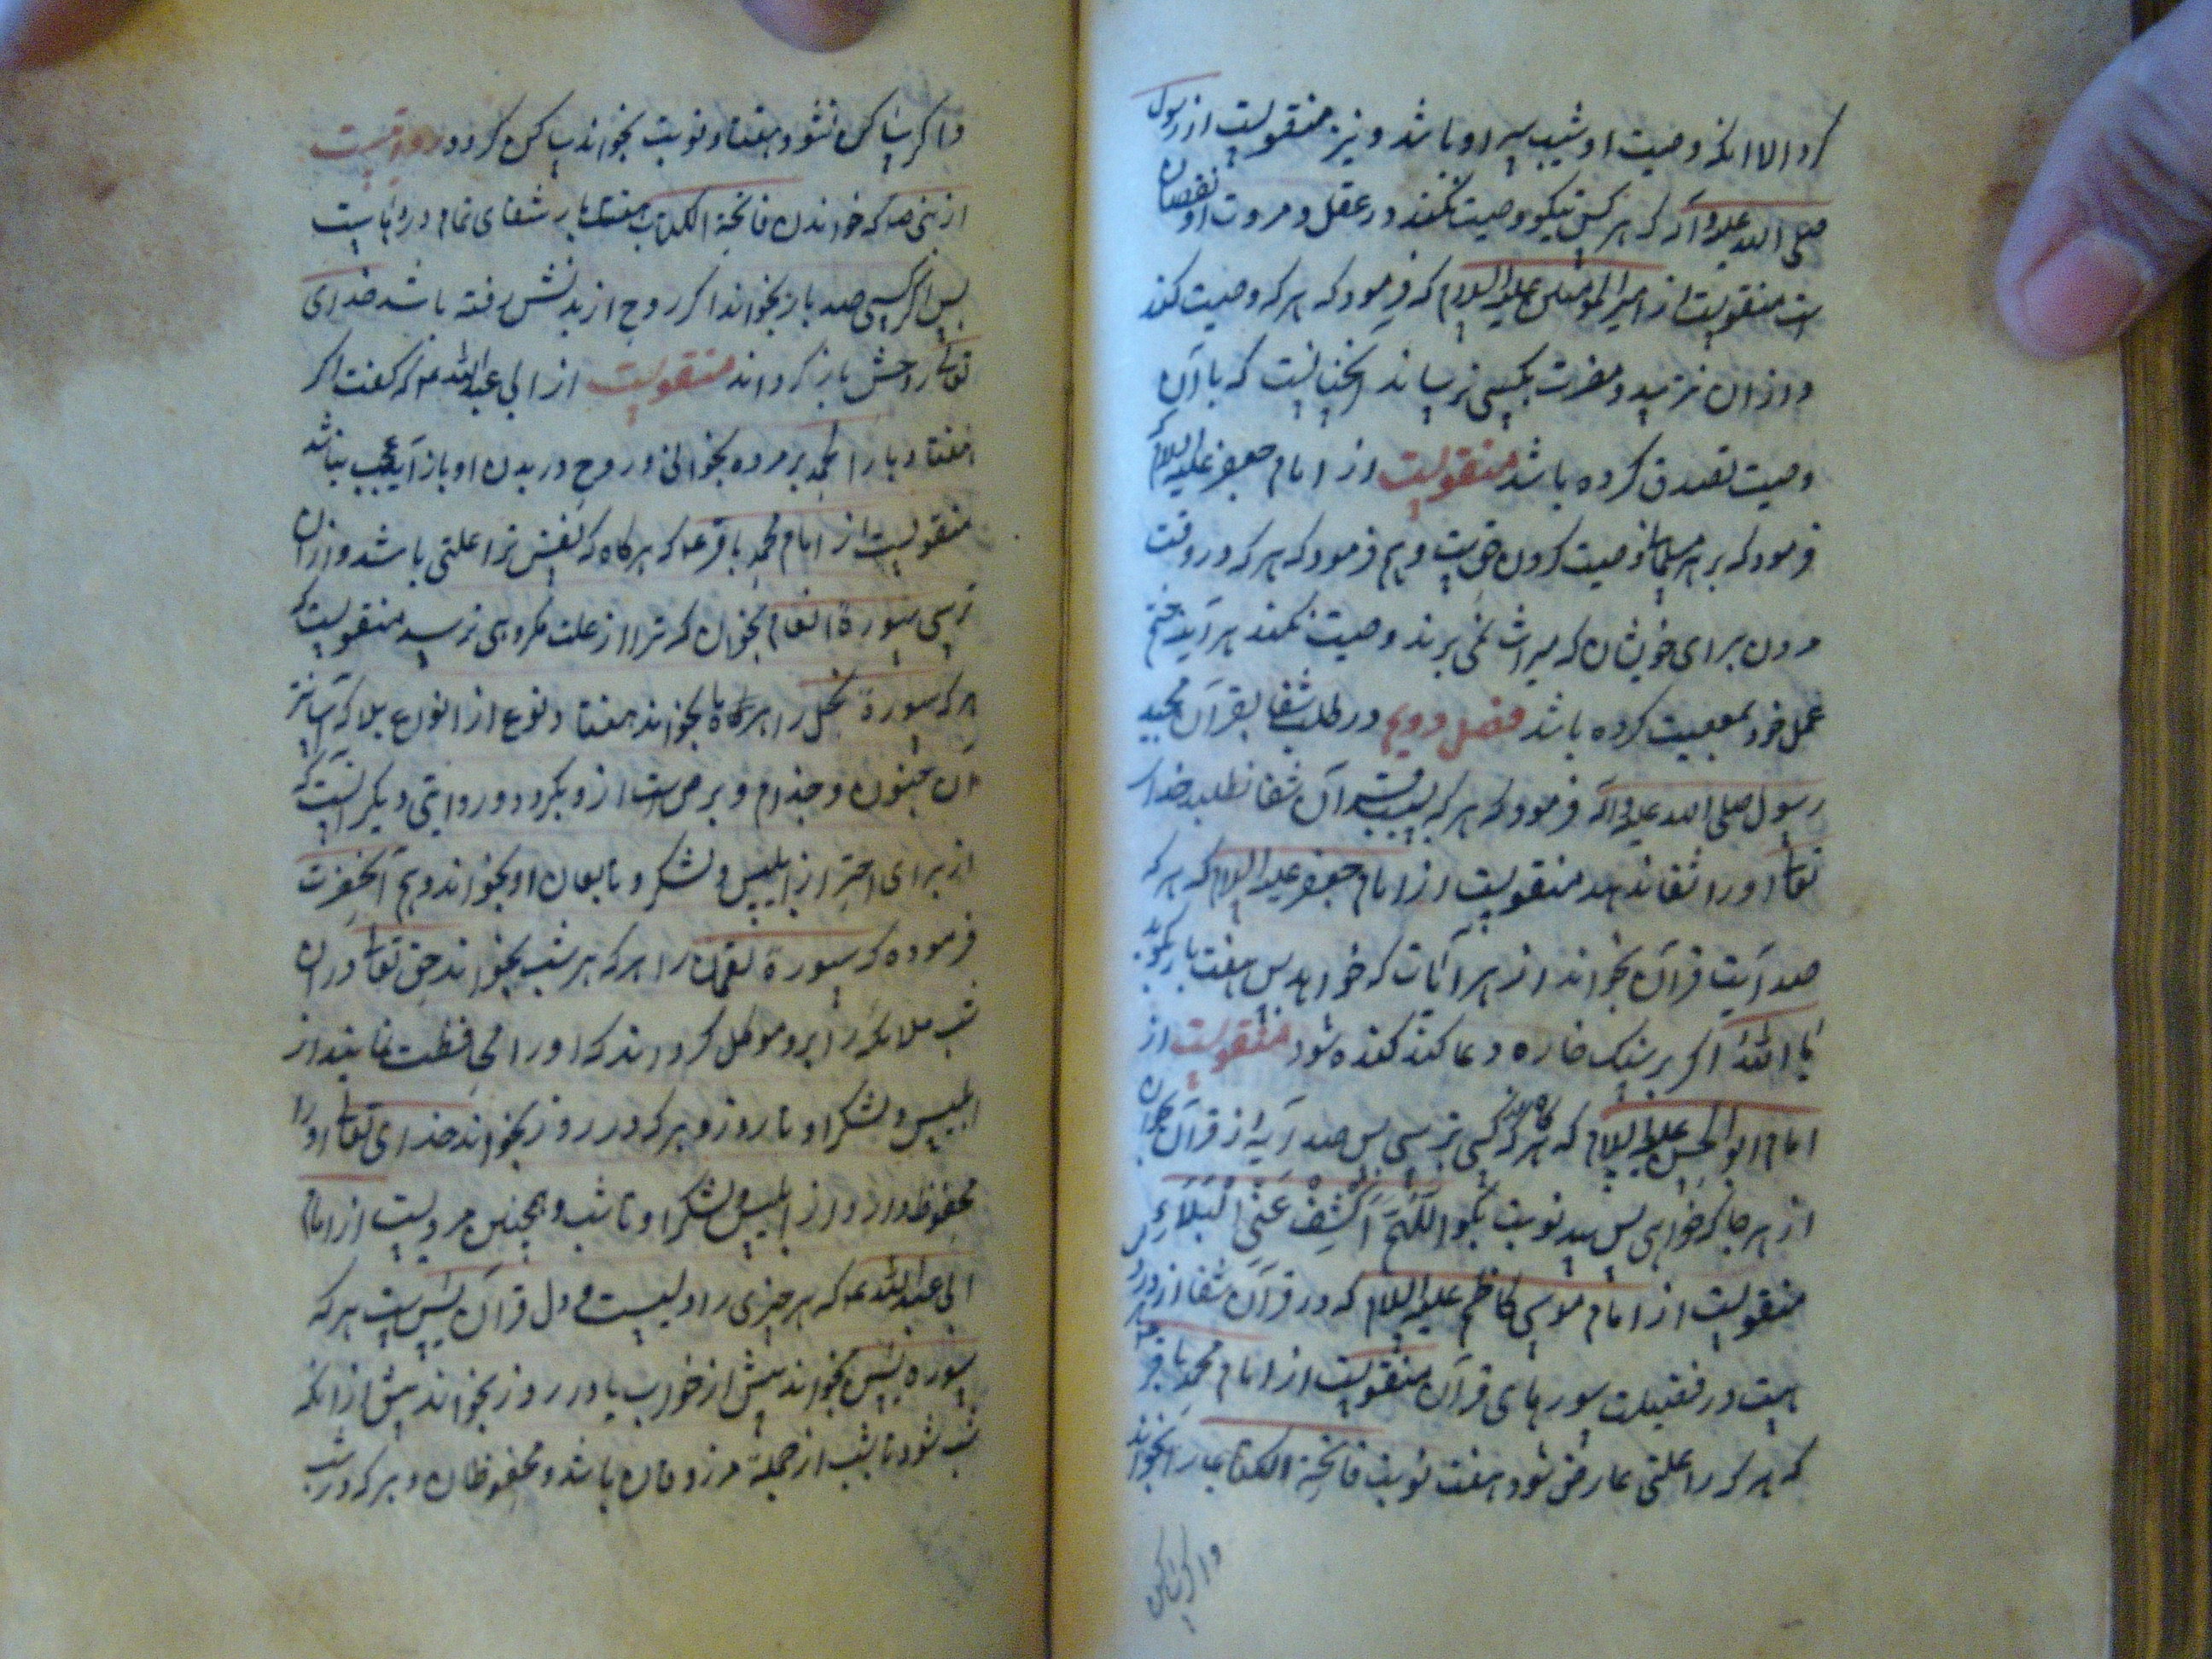 کرد الا انکه وصیت او شیب سر او باشد و نیز منقولست از رسول
صلی الله علیه و آله که هر کس نیکو وصیت نکند در عقل و مروت او نقصان
است منقولست از امیر المؤمنین علیه السلام که فرمود که هر که وصیت کند
و از ان نترسد و مضرت بکسی نرساند انچنانست که بآن
وصیت تصدق کرده باشد منقولست از امام جعفر علیه السلام که
فرمود که بر هر مسلمان وصیت کردن حق است و هم فرمود که هر که در وقت
مردن برای خویشان که میراث نمی برند وصیت نکند هر آینه ختم
عمل خود بمعصیت کرده باشد فصل دویم در طلب شفا بقرآن مجید
رسول صلی الله علیه و آله فرمود که هر که بسبب قرآن شفا نطلبد خدای
تعالی او را شفا ندهد منقولست از امام جعفر علیه السلام که هر که
صد آیت قرآن بخواند از هر آیات که خواهد پس هفت بار بکوید
یا الله اکر بر سنک خاره دعا کند کنده شود منقولست از
امام ابو الحسن علیه السلام که هر کاه از کسی ترسی پس صد آیه از قرآن بخوان
از هر جا که خواهی پس سه نوبت بکو اللهم اکشف عنی البلاء
منقولست از امام موسی کاظم علیه السلام که در قرآن شفا از هر درد
هست در فضیلت سورهای قرآن منقولست از امام محمد باقر
که هر که را علتی عارض شود هفت نوبت فاتحة الکتاب را بخواند
و اکر ساکن
و اکر ساکن نشود هفتاد نوبت بخواند ساکن کردد روایتست
از نبی صلعم که خواندن فاتحة الکتاب هفتاد بار شفای تمام دردهاست
پس اکر کسی صد بار بخواند اکر روح از بدنش رفته باشد خدای
تعالی روحش باز کرداند منقولست از ابی عبدالله ع که کفت اکر
هفتاد بار الحمد بر مرده بخوانی و روح در بدن او باز آید عجب نباشد
منقولست از امام محمد باقر ع که هر کاه که بنفس ترا علتی باشد و از ان
ترسی سورة انعام بخوان که ترا از علت مکروهی نرسد منقولست که
هر که سورة نحل را هر ماه بخواند هفتاد نوع از انواع بلا که آسانتر
آن جنون و جذام و برص است از و بکردد و روایتی دیکر آنست که
از برای احتراز از ابلیس و لشکر و تابعان او بخواند و هم آنحضرت
فرموده که سورة لقمان را هر که هر شب بخواند حق تعالی در ان
شب ملائکه را برو موکل کرداند که او را محافظت نمایند از
ابلیس و لشکر او تا روز و هر که در روز بخواند خدای تعالی او را
محفوظ دارد از ابلیس و لشکر او تا شب و همچنین مرویست از امام
ابی عبدالله ع که هر چیزی را دلیست و دل قرآن یس است هر که
سوره یس بخواند پیش از خواب یا در روز بخواند پیش از انکه
شب شود تا شب از جمله مرزوقان باشد و محفوظان و هر که در شب